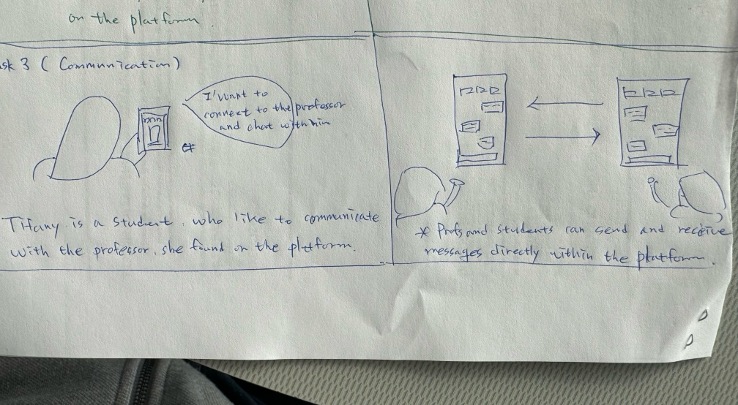 on the platform.
sk 3 (Communication)
I want to
connect to the professor
and chat with him
Tifany is a student, who like to communicate
with the professor, she found on the platform.
* Profs and students can send and receive
messages directly within the platform.